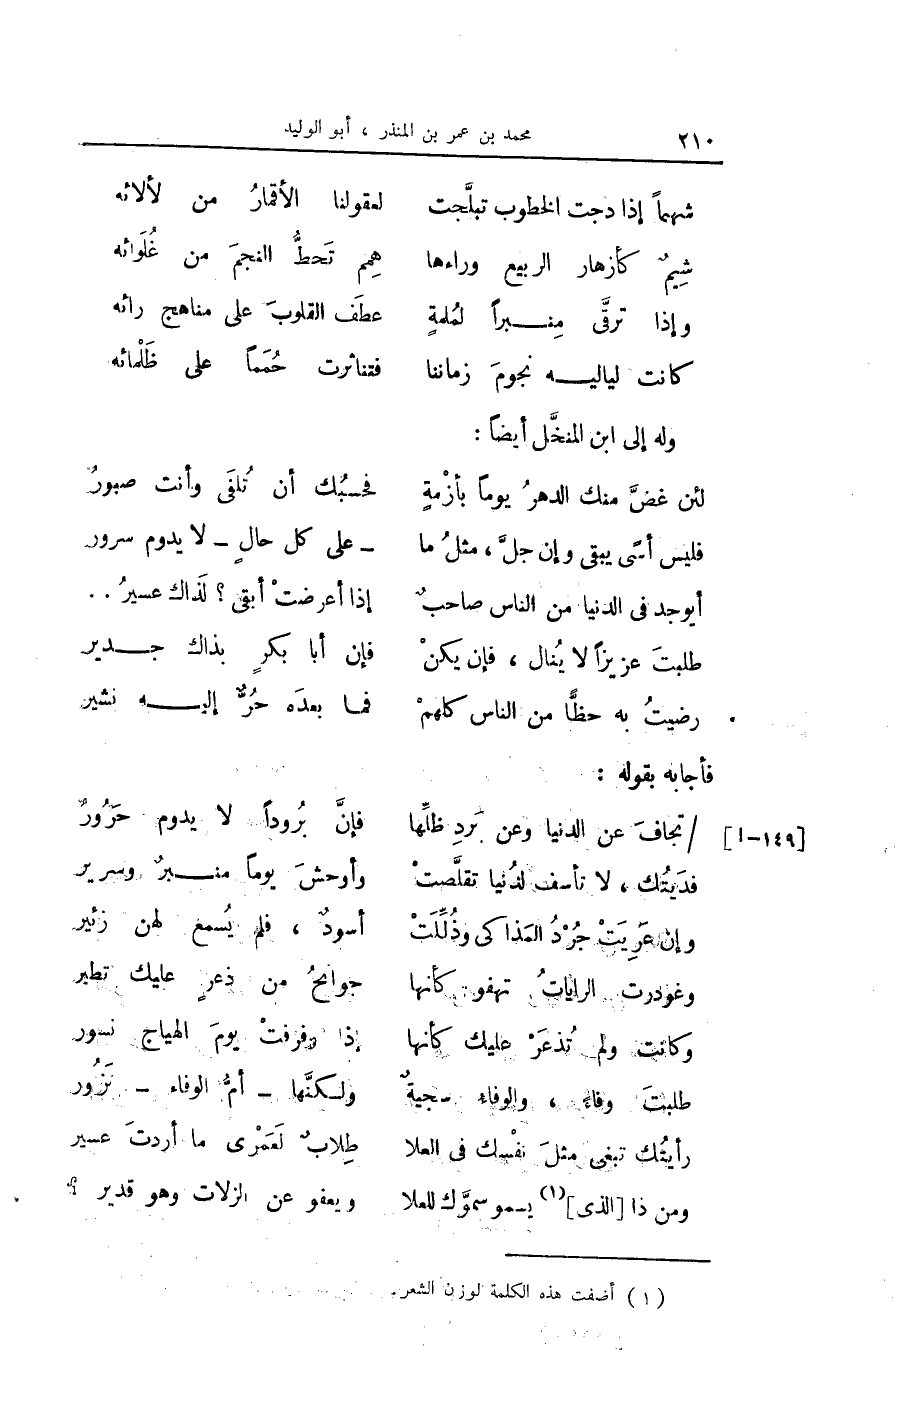 ٢١٠ محمد بن عمر بن المنذر ، أبو الوليد
شهماً إذا دجت الخطوب تبلَّجت لعقولنا الأقمارُ من لألائه
شِيمٌ كأزهار الربيع وراءها هِمم تَحطُّ النجمَ من غُلَوائه
وإذا ترقَّى مِنــبراً لمُلمةٍ عطَف القلوبَ على مناهج رائه
كانت لياليــه نجومَ زماننا فتناثرت حُمَماً على ظَلْمائه
وله إلى ابن المنخَّل أيضاً :
لئن غضَّ منك الدهرُ يوماً بأزْمةٍ فحسبُك أن تُلفَى وأنت صبورٌ
فليس أسًى يبقى وإن جلَّ ، مثلُ ما – على كل حالٍ – لا يدوم سرور
أيوجد فى الدنيا من الناس صاحبٌ إذا أعرضتْ أبقى ؟ لَذاك عسيرُ . .
طلبتَ عزيزاً لا يُنال ، فإن يكنْ فإن أبا بكرٍ بذاك جــدير
رضيتُ به حظًّا من الناس كلهمْ فمـا بعدَه حُرٌّ إليــه نشير
فأجابه بقوله :
[١٤٩–ا] / تجافَ عن الدنيا وعن بَردِ ظلِّها فإنَّ بُروداً لا يدوم حَرُورٌ
فدَيتُك ، لا تأسف لدُنيا تقلَّصتْ وأوحشَ يوماً منــبرٌ وسرير
وإن عَرِيَتْ جُرْدُ المَذاكى وذُلِّلَتْ أسودٌ ، فلم يُسمع لهن زئير
وغودرت الراياتُ تهفو كأنها جوانحُ من ذعرٍ عليك تطير
وكانت ولم تُذعَرْ عليك كأنها إذا رفرفتْ يومَ الهياج نسور
طلبتَ وفاءً ، والوفاء سجيةٌ ولـكنَّها – أمُّ الوفاء – نَزُور
رأيتُك تبغى مثلَ نفْسِك فى العلا طِلابٌ لَعَمْرى ما أردتَ عسير
ومن ذا [الذى](١) يسمو سموَّك للعلا ويعفو عن الزلات وهو قدير ؟
(١) أضفت هذه الكلمة لوزن الشعر .